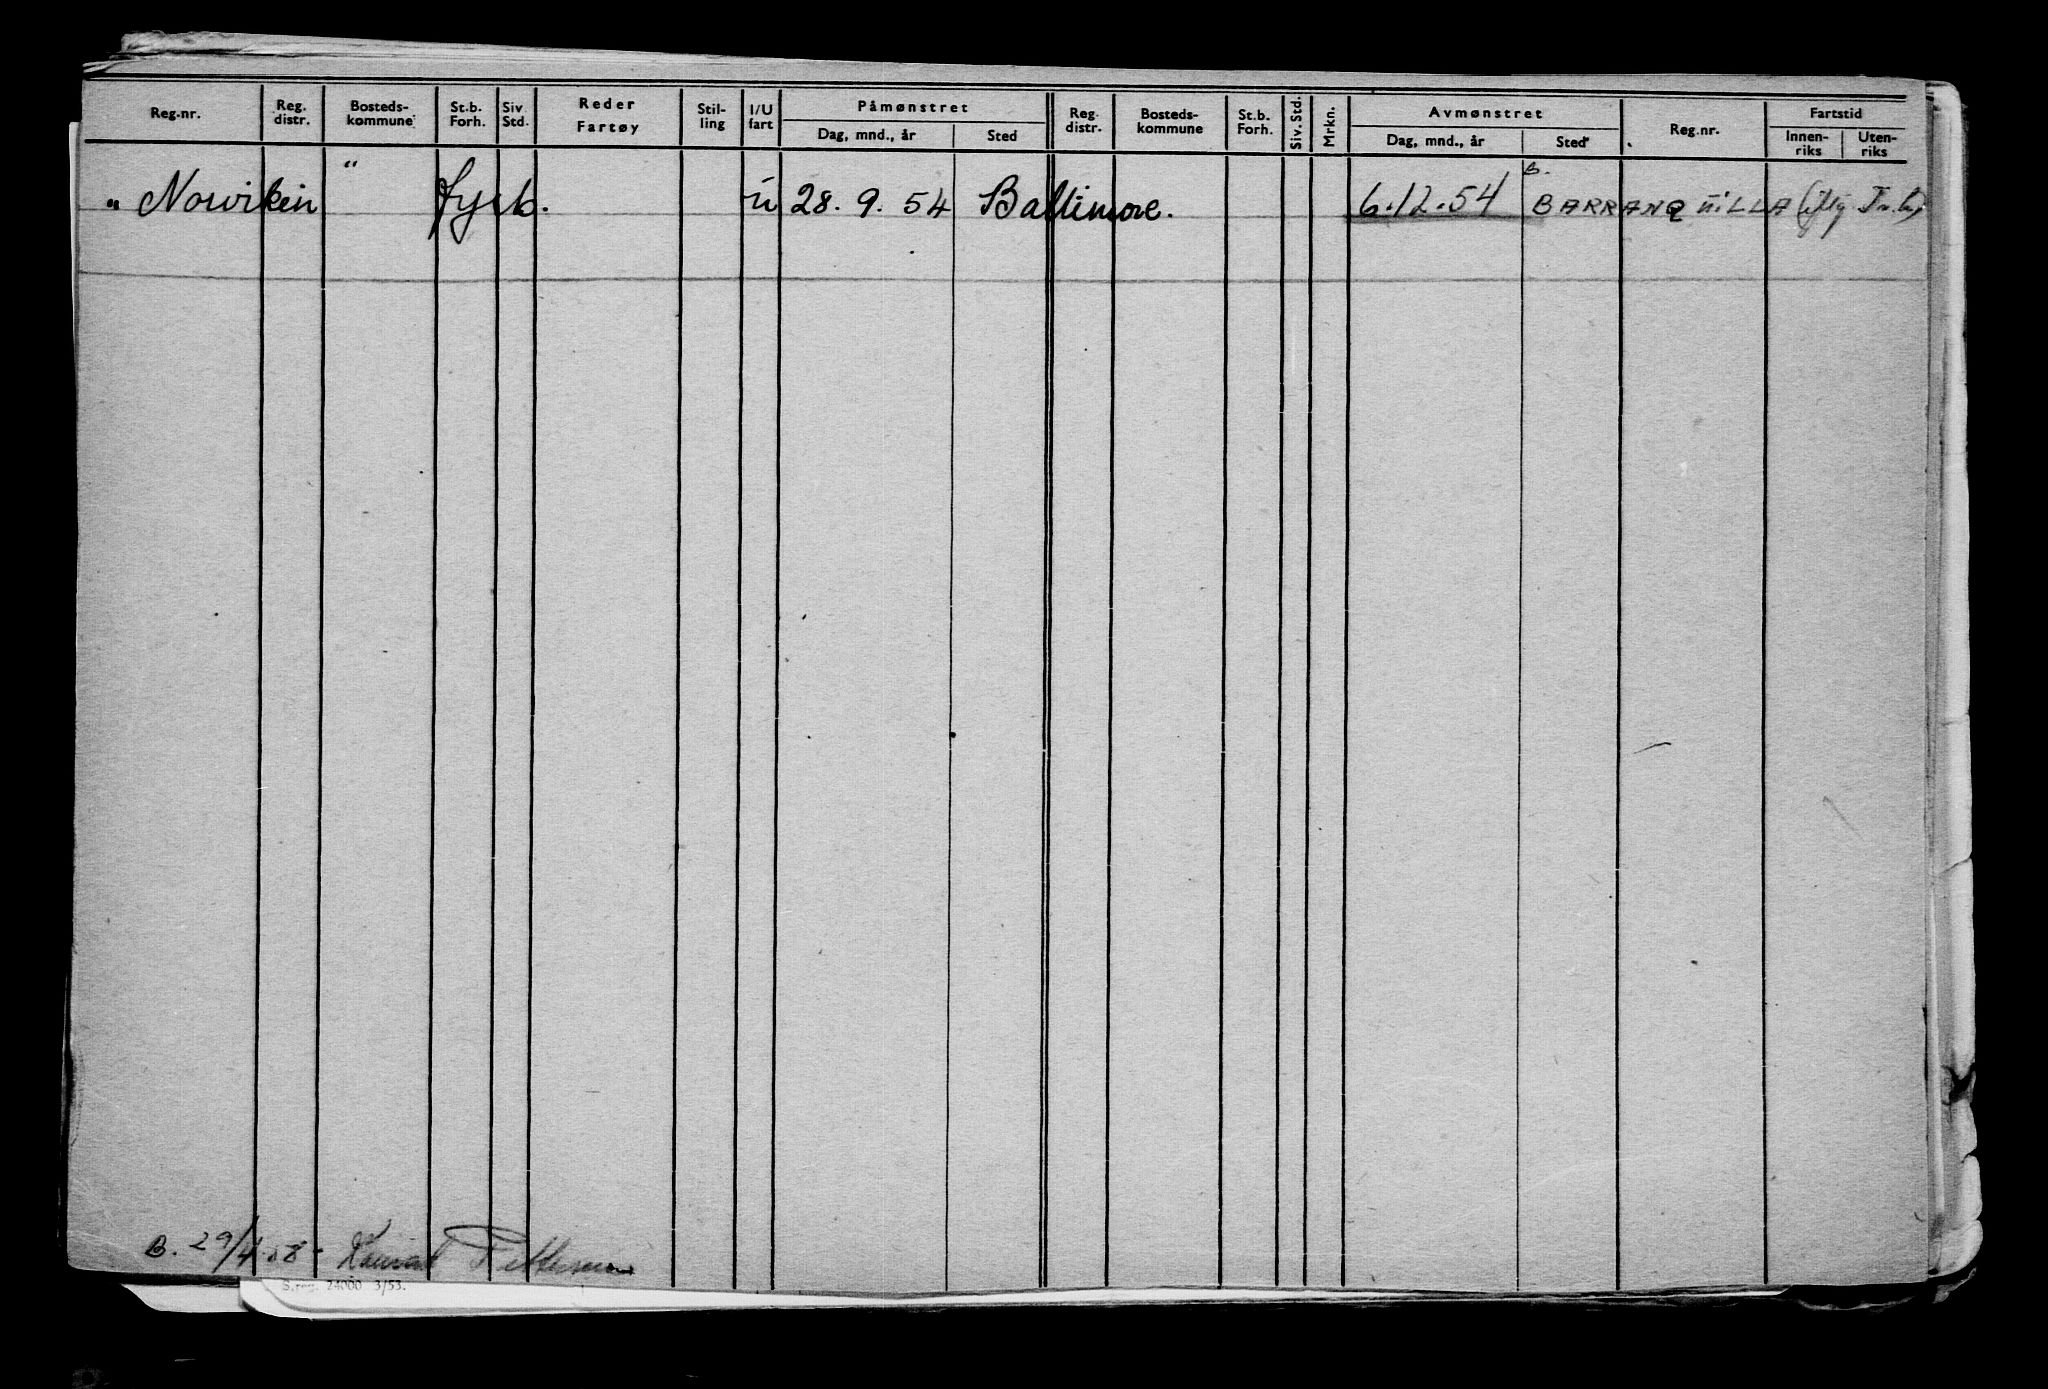 Reg.nr. Reg. distr. Bosteds- kommune St.b. Forh. Siv. Std. Reder Fartøy Stil- ling I/U fart Påmønstret Dag, mnd., år Sted Reg. distr. Bosteds- kommune St.b. Forh. Siv. Std. Mrkn. Avmønstret Dag, mnd., år Sted Reg.nr. Fartstid Innen- riks Uten- riks
B.
" Norviken " fyrb. u 28. 9. 54 Baltimore. 6.12.54 BARRANQUILLA
B. 29/4.08 Konrad Pettersen
S.reg. 24000 3/53.